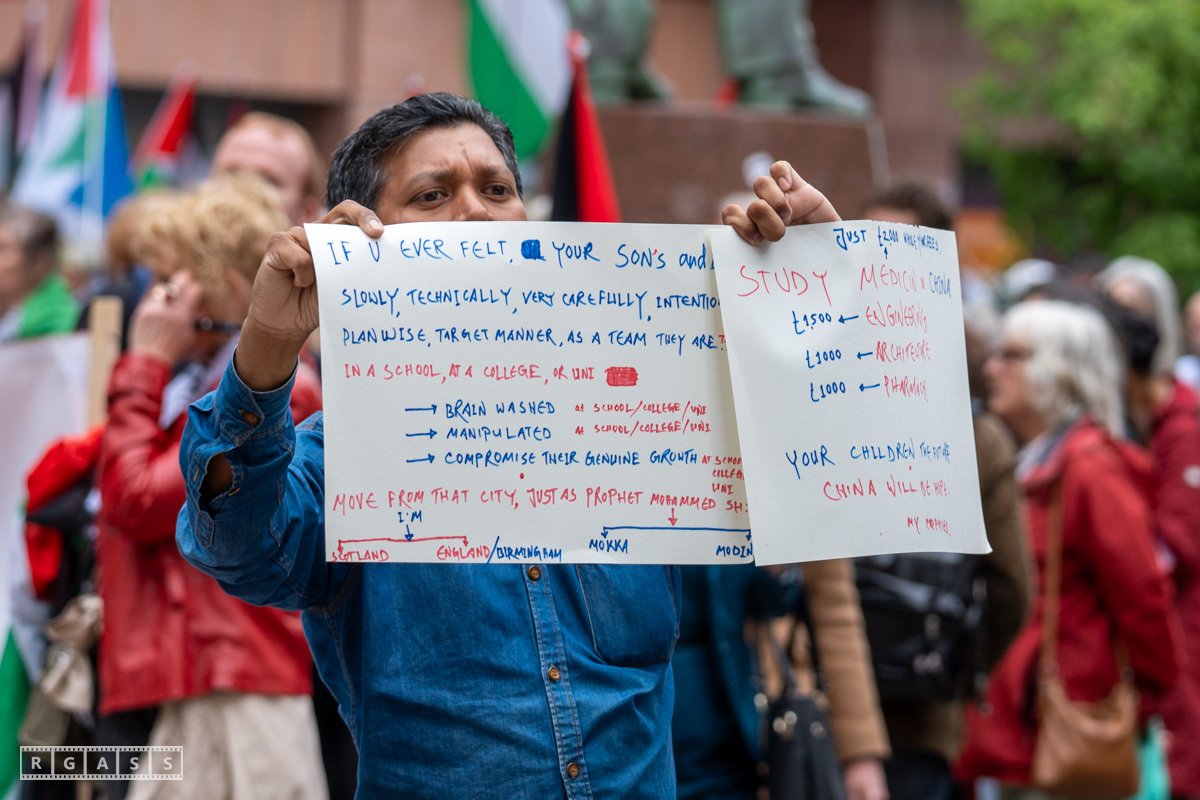 IF U EVER FELT, YOUR SON'S and
SLOWLY, TECHNICALLY, VERY CAREFULLY, INTENTIO
PLANWISE, TARGET MANNER, AS A TEAM THEY ARE
IN A SCHOOL, AT A COLLEGE, OR UNI
→ BRAIN WASHED AT SCHOOL/COLLEGE/UNI
→ MANIPULATED AT SCHOOL/COLLEGE/UNI
→ COMPROMISE THEIR GENUINE GROWTH AT SCHOO
COLLEG
UNI
MOVE FROM THAT CITY, JUST AS PROPHET MOHAMMED
I'M
SCOTLAND ENGLAND/BIRMINGHAM MOKKA MODIN
JUST £2,000
STUDY MEDICIN CHINA
£1,500 ← ENGINEERING
£1000 ← ARCHITECTURE
£1000 ← PHARMACY
YOUR CHILDREN THE FUTURE
CHINA WILL BE HOPE.
MY
RGASS